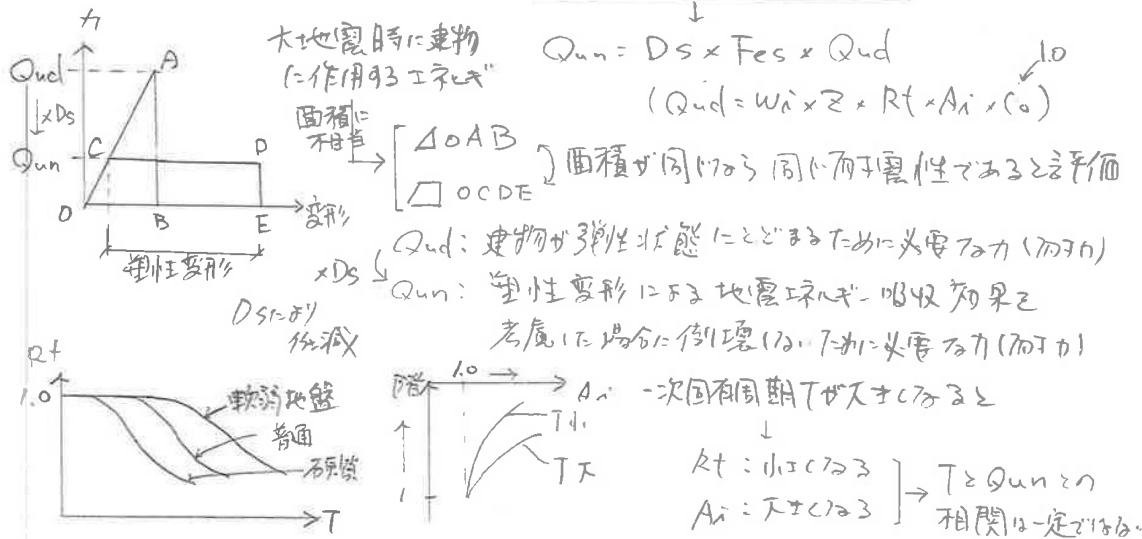 力
Qud
↓×Ds
Qun
A
C
D
O
B
E
変形
塑性変形
大地震時に建物
に作用するエネルギ
面積に
相当
△OAB
OCDE
面積が同じなら同じ耐震性であると評価
Qun = Ds × Fes × Qud
1.0
(Qud = Wi × Z × Rt × Ai × Co)
Qud: 建物が弾性状態にとどまるために必要な力(耐力)
×Ds
Qun: 塑性変形による地震エネルギー吸収効果を
考慮した場合に倒壊しないために必要な力(耐力)
Dsにより
低減
Rt
1.0
軟弱地盤
普通
硬質
T
階
1.0 →
Ai
↑
1
T小
T大
一次固有周期Tが大きくなると
↓
Rt: 小さくなる
Ai: 大きくなる
→ TとQunとの
相関は一定ではない.